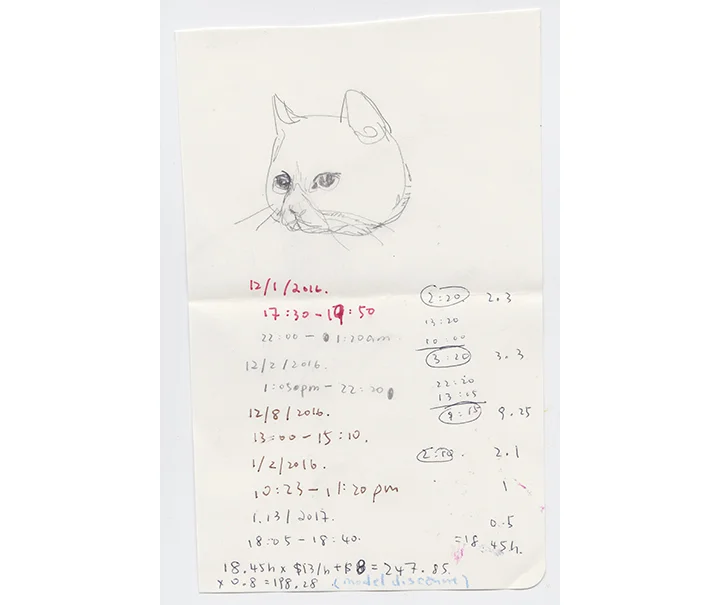 12/1/2016. 2:20 2.3
17:30 - 19:50 13:20
22:00 - 1:20am 10:00
12/2/2016. 3:20 3.3
1:05pm - 22:20 22:20
13:05
12/8/2016. 9:15 9.25
13:00 - 15:10. 2:10. 2.1
1/2/2016.
10:23 - 11:20 pm 1
1.13/2017. 0.5
18:05 - 18:40. =18.45h.
18.45h x $13/h + 8 = 247.85
x 0.8 = 198.28 (model discount)